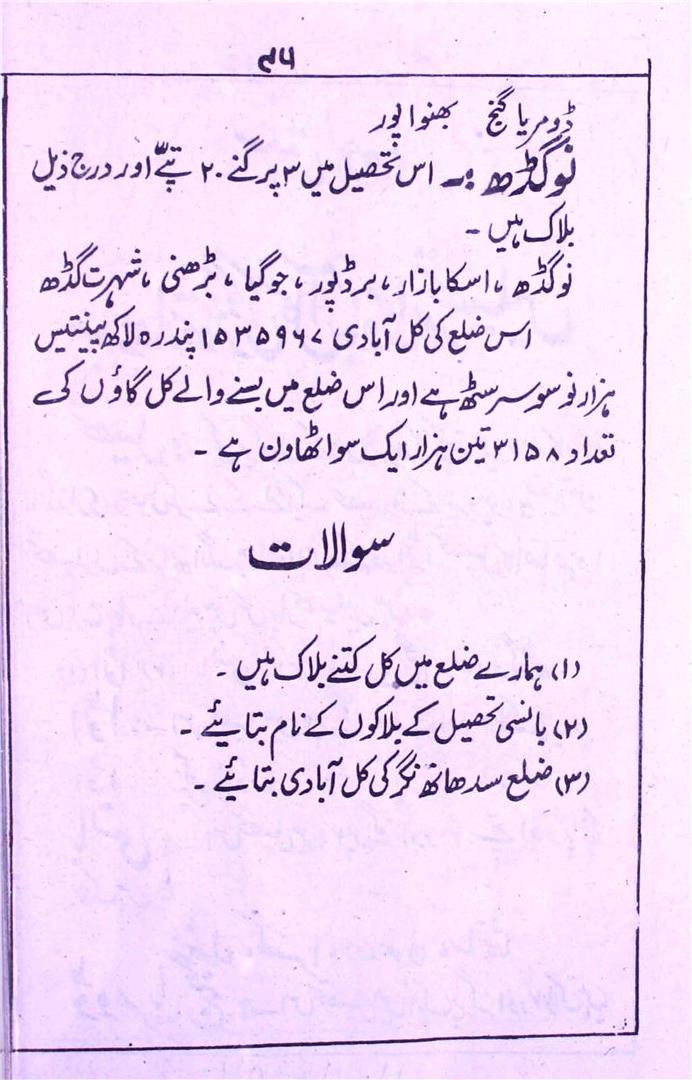 ۴۵
ڈومریا گنج بھنواپور
نوگڈھ :۔ اس تحصیل میں ۳ پرگنے ۲۰ تپّے اور درج ذیل
بلاک ہیں ۔
نوگڈھ ، اسکا بازار ، برڈپور ، جوگیا ، بڑھنی ، شہرت گڈھ
اس ضلع کی کل آبادی ۱۵۳۵۹۶۷ پندرہ لاکھ پینتیس
ہزار نو سو سرسٹھ ہے اور اس ضلع میں بسنے والے کل گاؤں کی
تعداد ۳۱۵۸ تین ہزار ایک سو اٹھاون ہے ۔
سوالات
(۱) ہمارے ضلع میں کل کتنے بلاک ہیں ۔
(۲) بانسی تحصیل کے بلاکوں کے نام بتایئے ۔
(۳) ضلع سدھارتھ نگر کی کل آبادی بتایئے ۔